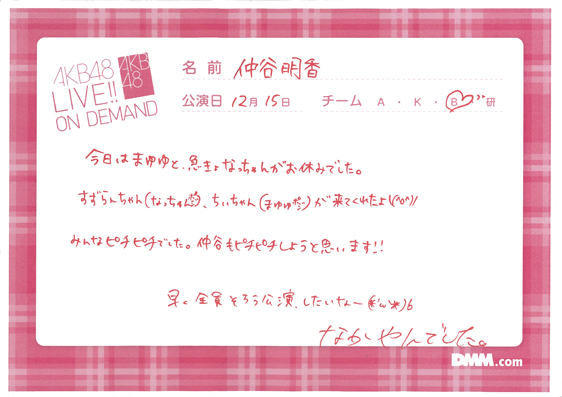 AKB48
LIVE!!
ON DEMAND
AKB
48
名前 仲谷明香
公演日 12月15日 チーム A・K・B 研
今日はまゆゆと、急きょなっちゃんがお休みでした。
すずらんちゃん(なっちゃんポジ)、ちぃちゃん(まゆゆポジ)が来てくれたよ!(^o^)!
みんなピチピチでした。仲谷もピチピチしようと思います!!
早く全員そろう公演、したいなー(*'ω'*)b
なかやんでした。
DMM.com